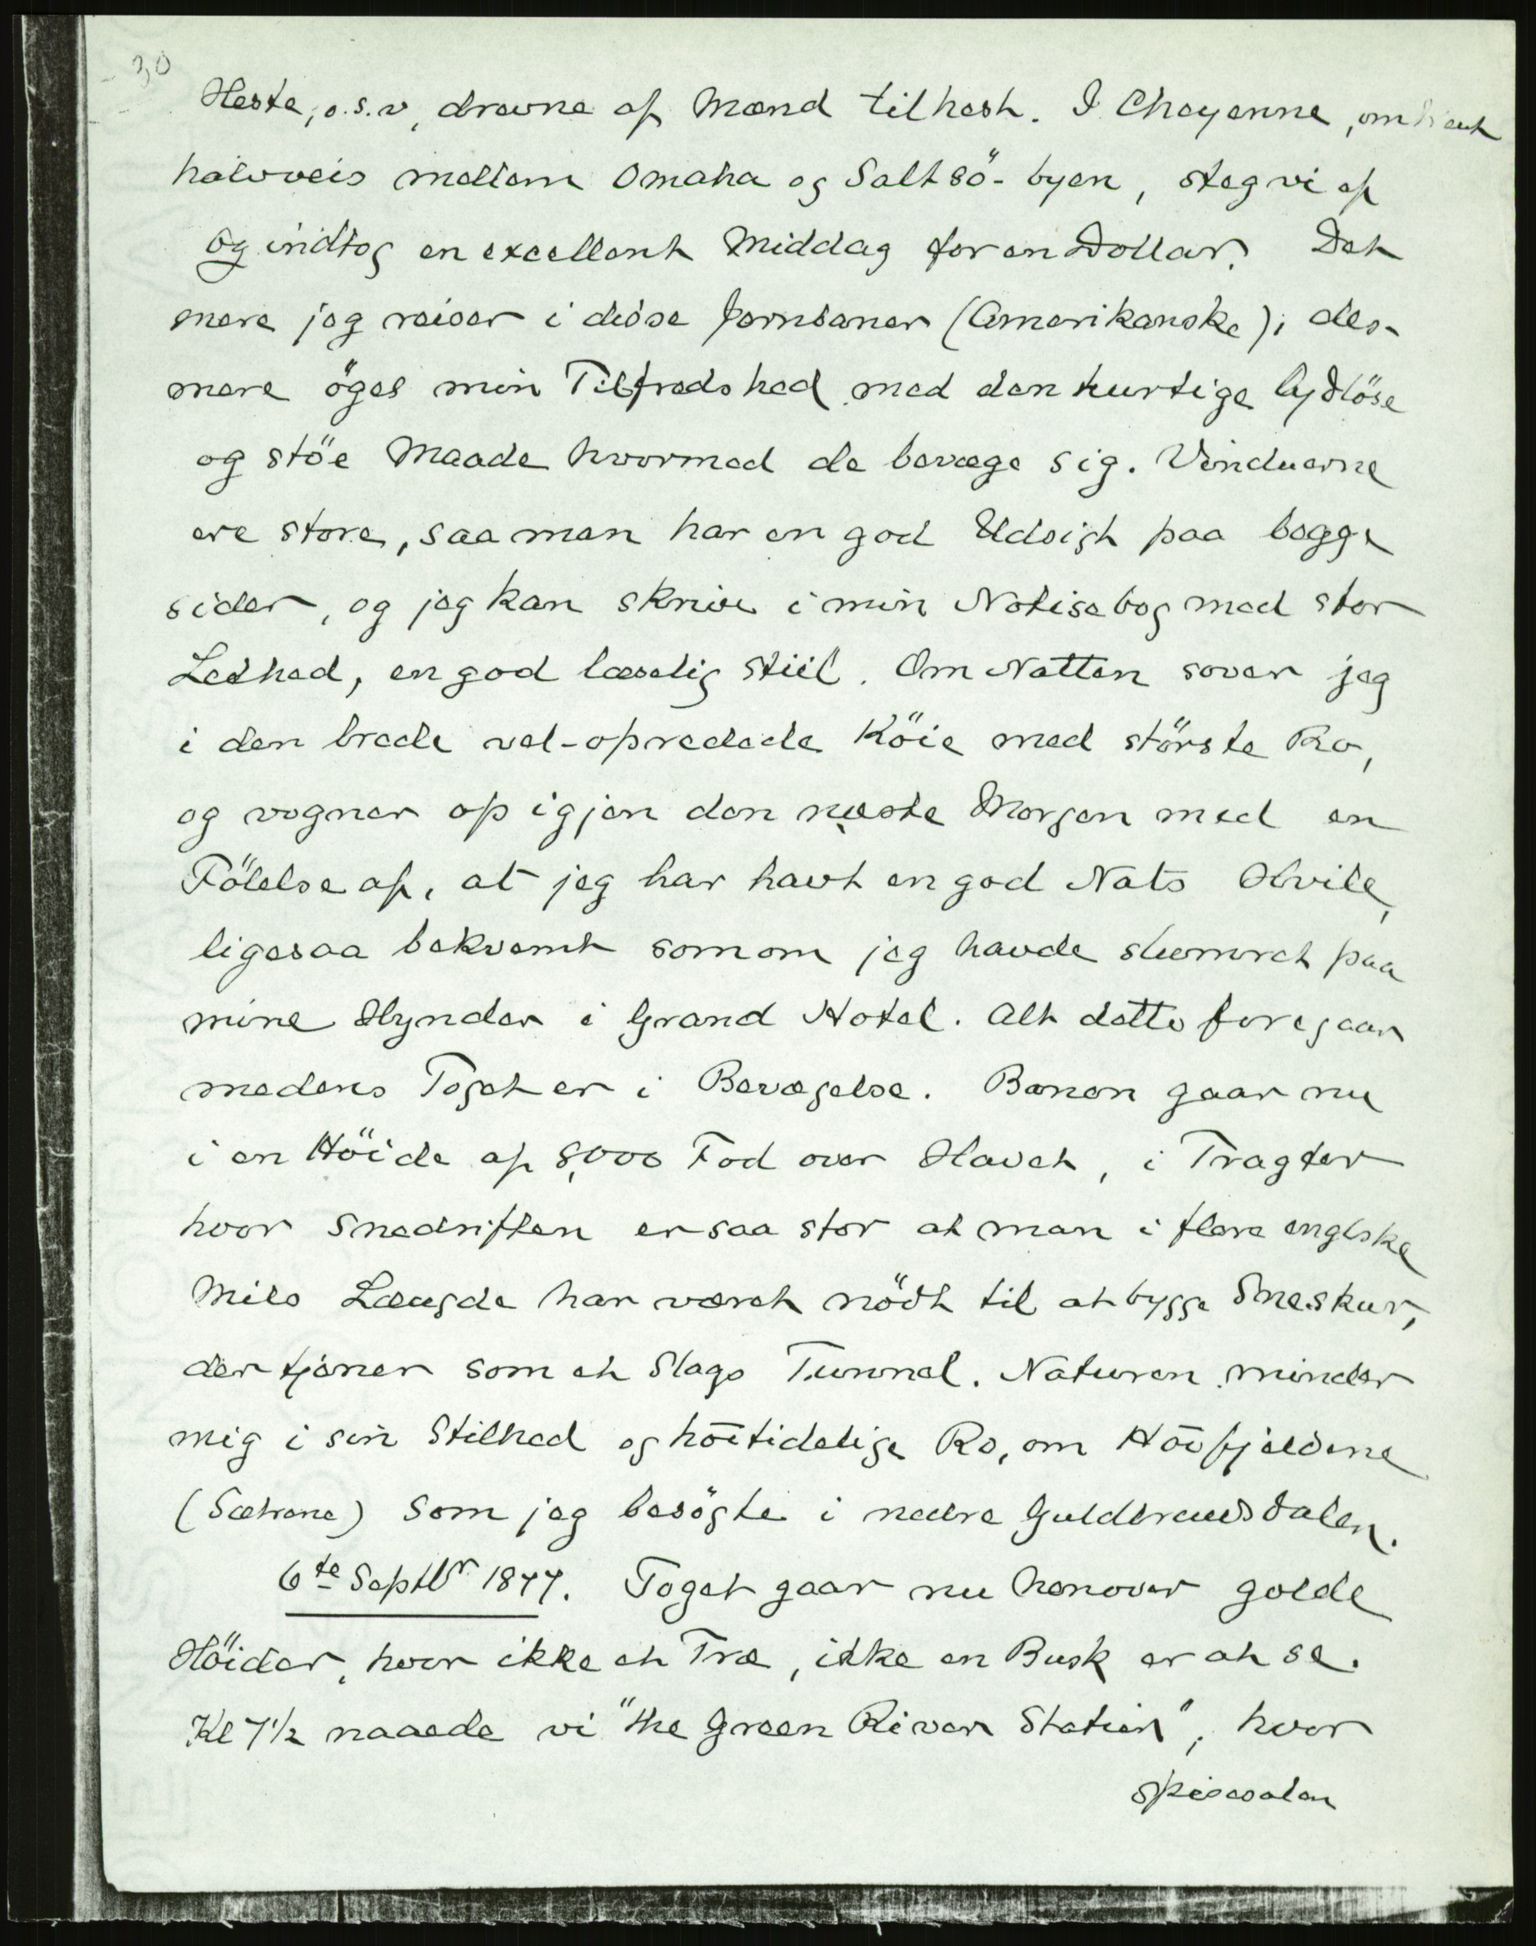 30
Heste, o.s.v, drevne af Mænd tilhest. I Cheyenne, omtrent
halvveis mellem Omaha og Saltsö-byen, steg vi af
og indtog en excellent Middag for en Dollar. Det
mere jeg reiser i disse Jernbaner (Amerikanske), des-
mere öges min Tilfredshed med den hurtige lydlöse
og stöe Maade hvormed de bevæge sig. Vinduerne
ere store, saa man har en god Udsigt paa begge
sider, og jeg kan skrive i min Notisebog med stor
Lethed, en god læselig stiil. Om Natten sover jeg
i den brede vel-opredede Köie med störste Ro,
og vogner op igjen den næste Morgen med en
Fölelse af, at jeg har havt en god Nats Hvile,
ligesaa bekvemt som om jeg havde slumret paa
mine Hynder i Grand Hotel. Alt dette foregaar
medens Toget er i Bevægelse. Banen gaar nu
i en Höide af 8,000 Fod over Havet, i Tragter
hvor Snedriften er saa stor at man i flere engelske
Miles Længde har været nödt til at bygge Sneskur,
der tjener som et Slags Tunnel. Naturen minder
mig i sin Stilhed og höitidelige Ro, om Höifjeldene
(Sætrene) som jeg besögte i nedre Guldbrandsdalen.
6te Septbr 1877. Toget gaar nu henover golde
Höider, hvor ikke et Træ, ikke en Busk er at se.
Kl 7½ naaede vi "the Green River Station", hvor
spisesalen